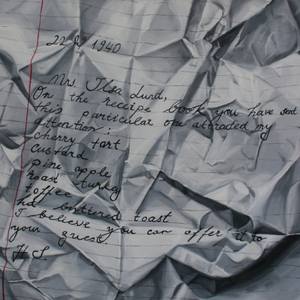 1940
Mrs. Ilsa Lund,
On the receipe book you have sent
this particular one attracted my
attention:
cherry tart
custard
pine apple
roast turkey
toffee
hot buttered toast
I believe you can offer it to
your guest